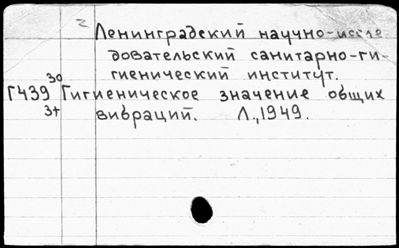 2 Ленинградский научно-иссле
довательский санитарно-ги-
гиенический институт.
30
Г439 Гигиеническое значение общих
3+ вибраций. Л.,1949.